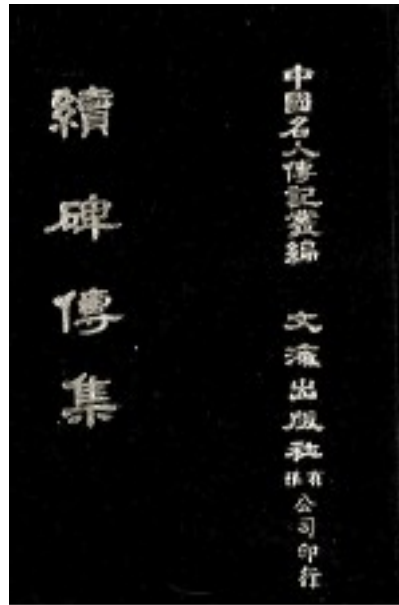 中國名人傳記叢編 文海出版社有限公司印行
續碑傳集